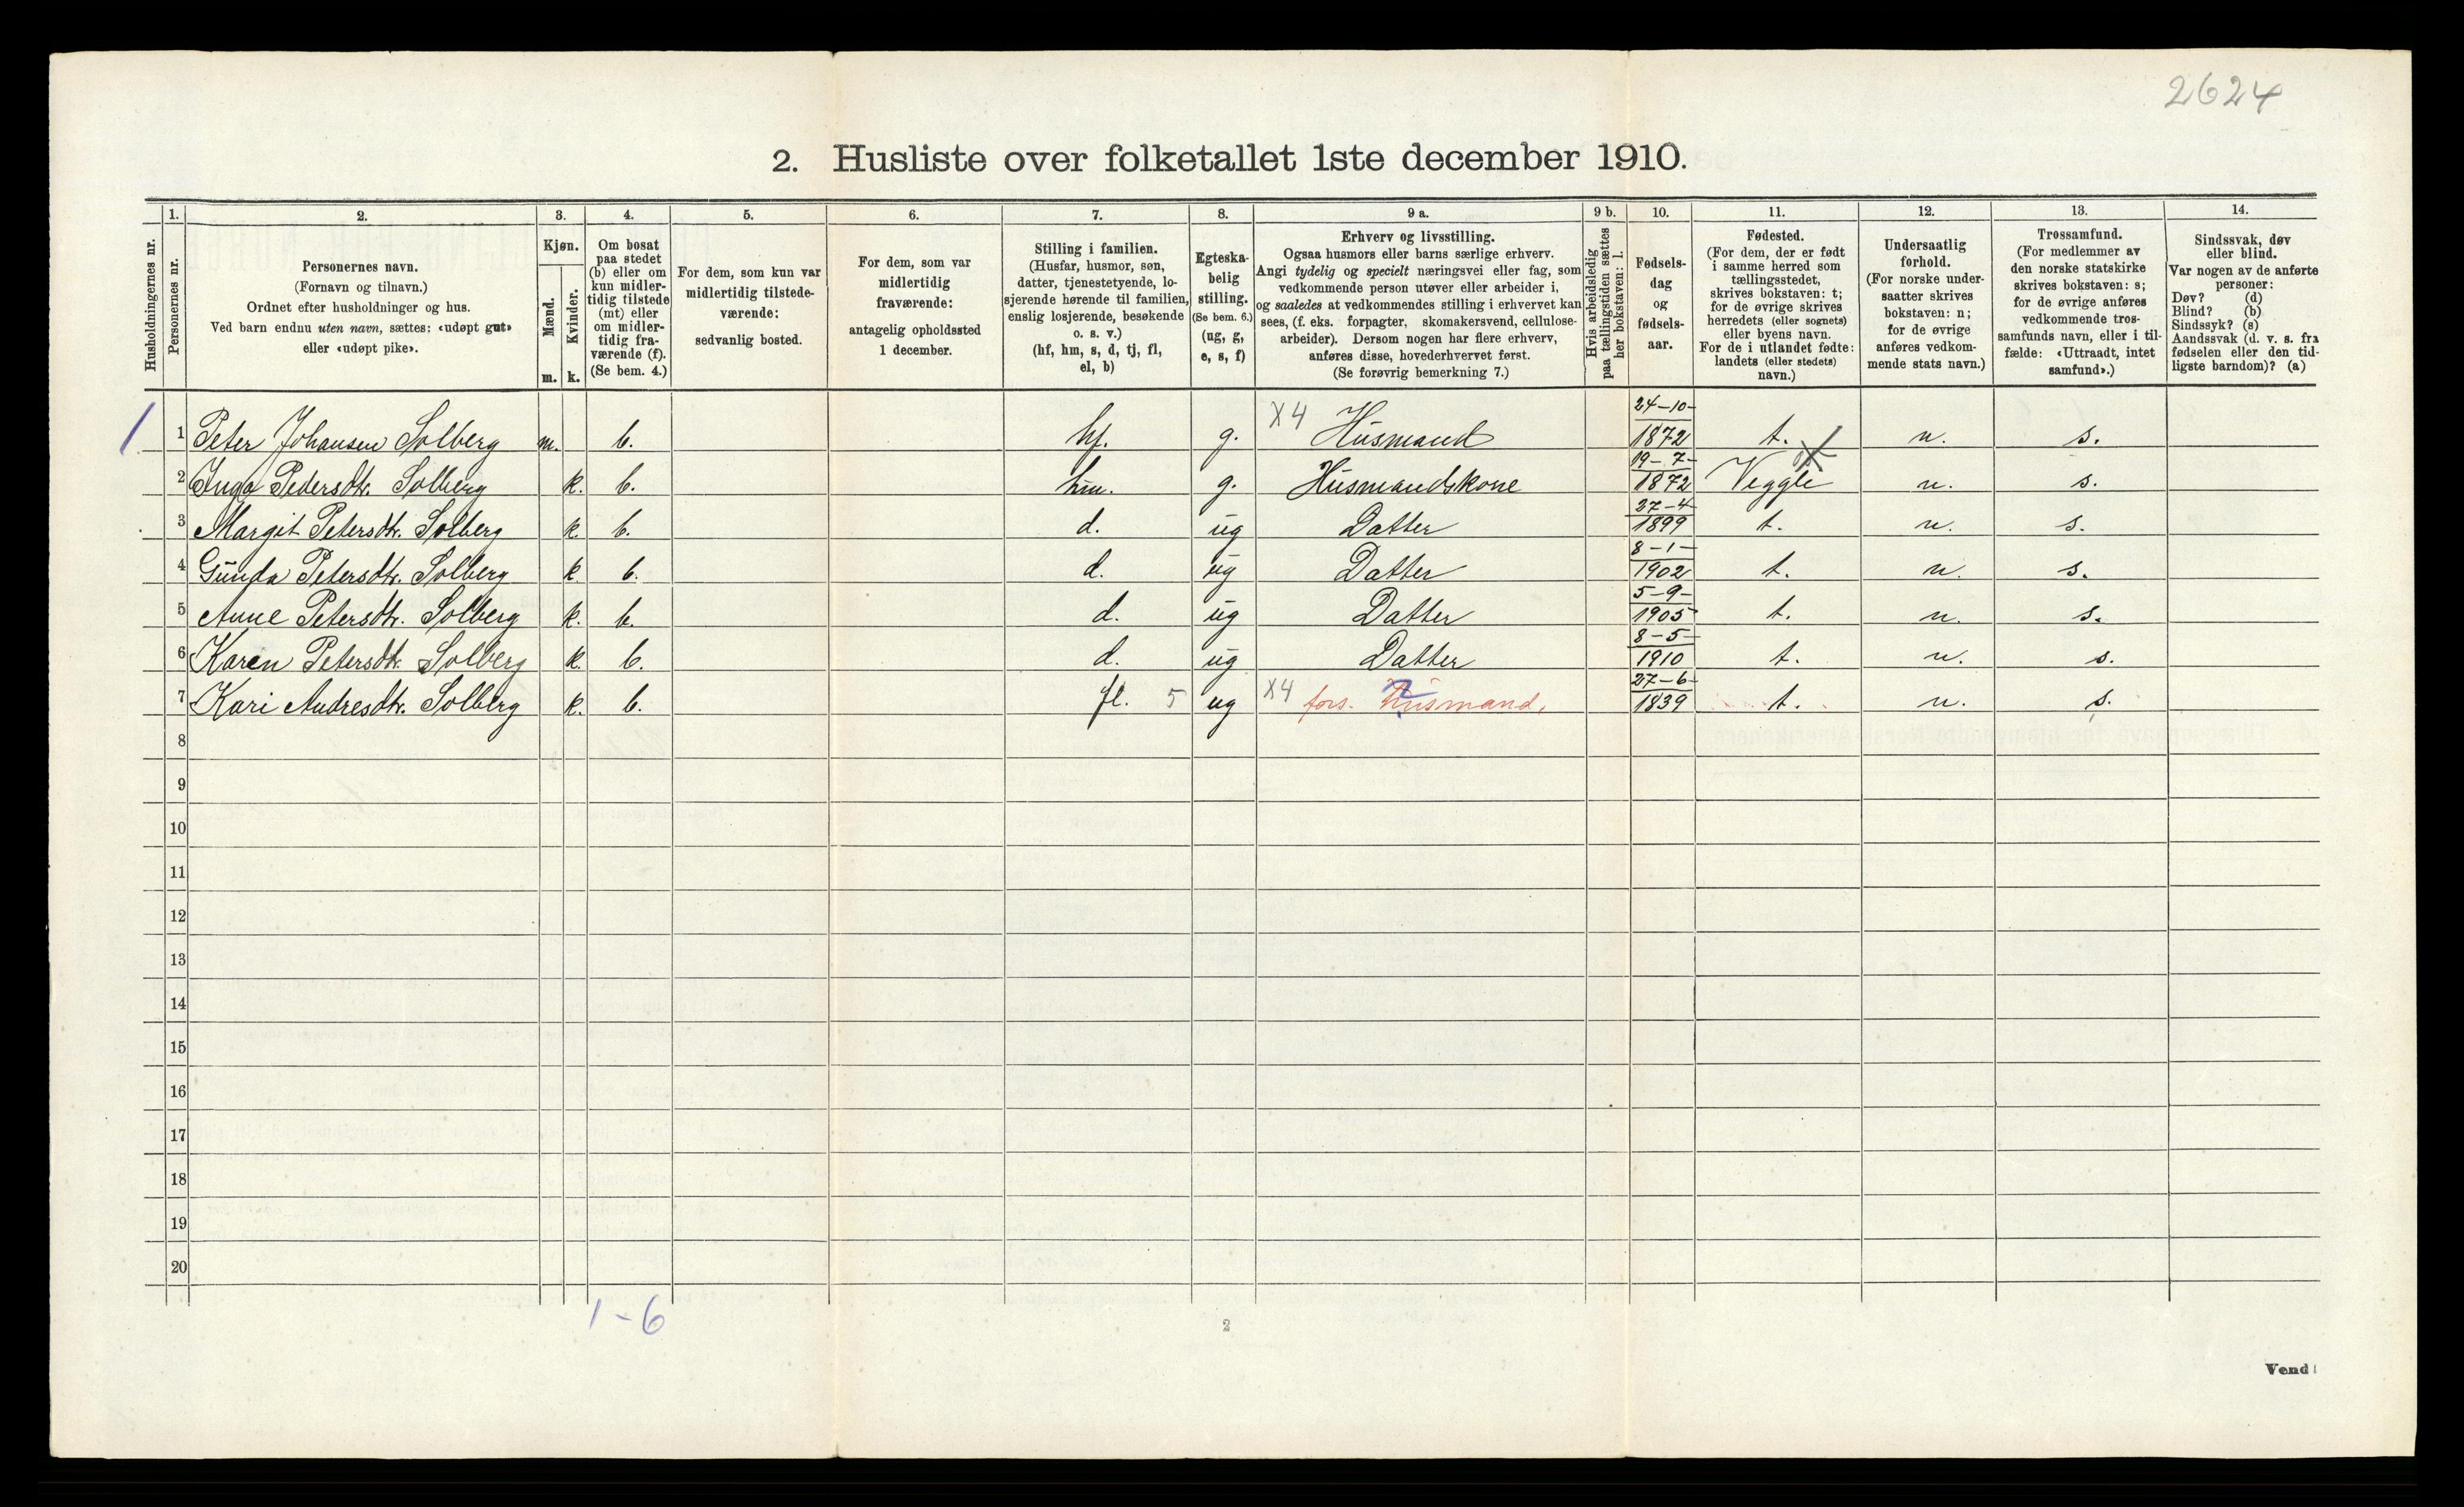 2624
2. Husliste over folketallet 1ste december 1910.
1. 2. 3. 4. 5. 6. 7. 8. 9 a. 9 b. 10. 11. 12. 13. 14.
Husholdningernes nr.
Personernes nr.
Personernes navn.
(Fornavn og tilnavn.)
Ordnet efter husholdninger og hus.
Ved barn endnu uten navn, sættes: «udøpt gut»
eller «udøpt pike».
Kjøn.
Mænd.
Kvinder.
m. k.
Om bosat
paa stedet
(b) eller om
kun midler-
tidig tilstede
(mt) eller
om midler-
tidig fra-
værende (f).
(Se bem. 4.)
For dem, som kun var
midlertidig tilstede-
værende:
sedvanlig bosted.
For dem, som var
midlertidig
fraværende:
antagelig opholdssted
1 december.
Stilling i familien.
(Husfar, husmor, søn,
datter, tjenestetyende, lo-
sjerende hørende til familien,
enslig losjerende, besøkende
o. s. v.)
(hf, hm, s, d, tj, fl,
el, b)
Egteska-
belig
stilling.
(Se bem. 6.)
(ug, g,
e, s, f)
Erhverv og livsstilling.
Ogsaa husmors eller barns særlige erhverv.
Angi tydelig og specielt næringsvei eller fag, som
vedkommende person utøver eller arbeider i,
og saaledes at vedkommendes stilling i erhvervet kan
sees, (f. eks. forpagter, skomakersvend, cellulose-
arbeider). Dersom nogen har flere erhverv,
anføres disse, hovederhvervet først.
(Se forøvrig bemerkning 7.)
Hvis arbeidsledig
paa tællingstiden sættes
her bokstaven: l.
Fødsels-
dag
og
fødsels-
aar.
Fødested.
(For dem, der er født
i samme herred som
tællingsstedet,
skrives bokstaven: t;
for de øvrige skrives
herredets (eller sognets)
eller byens navn.
For de i utlandet fødte:
landets (eller stedets)
navn.)
Undersaatlig
forhold.
(For norske under-
saatter skrives
bokstaven: n;
for de øvrige
anføres vedkom-
mende stats navn.)
Trossamfund.
(For medlemmer av
den norske statskirke
skrives bokstaven: s;
for de øvrige anføres
vedkommende tros-
samfunds navn, eller i til-
fælde: «Uttraadt, intet
samfund».)
Sindssvak, døv
eller blind.
Var nogen av de anførte
personer:
Døv? (d)
Blind? (b)
Sindssyk? (s)
Aandssvak (d. v. s. fra
fødselen eller den tid-
ligste barndom)? (a)
1 1 Peter Johansen Solberg m. b. hf. g. X4 Husmand 24-10-1872 t. n. s.
2 Inga Pedersdtr. Solberg k. b. hm. g. Husmandskone 19-7-1872 Veggli n. s.
3 Margit Petersdtr. Solberg k. b. d. ug Datter 27-4 1899 t. n. s.
4 Gunda Petersdtr. Solberg k. b. d. ug Datter 8-1-1902 t. n. s.
5 Anne Petersdtr. Solberg k. b. d. ug Datter 5-9-1905 t. n. s.
6 Karen Petersdtr. Solberg k. b. d. ug Datter 8-5-1910 t. n. s.
7 Kari Andresdtr. Solberg k. b. fl. 5 ug X4 fors. Husmand. 27-6-1839 t. n. s.
8
9
10
11
12
13
14
15
16
17
18
19
20
1-6
2
Vend!